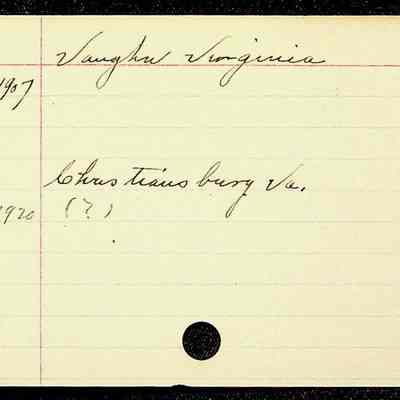 Vaughn Virginia
1907
Christiansburg Va.
1920 (?)